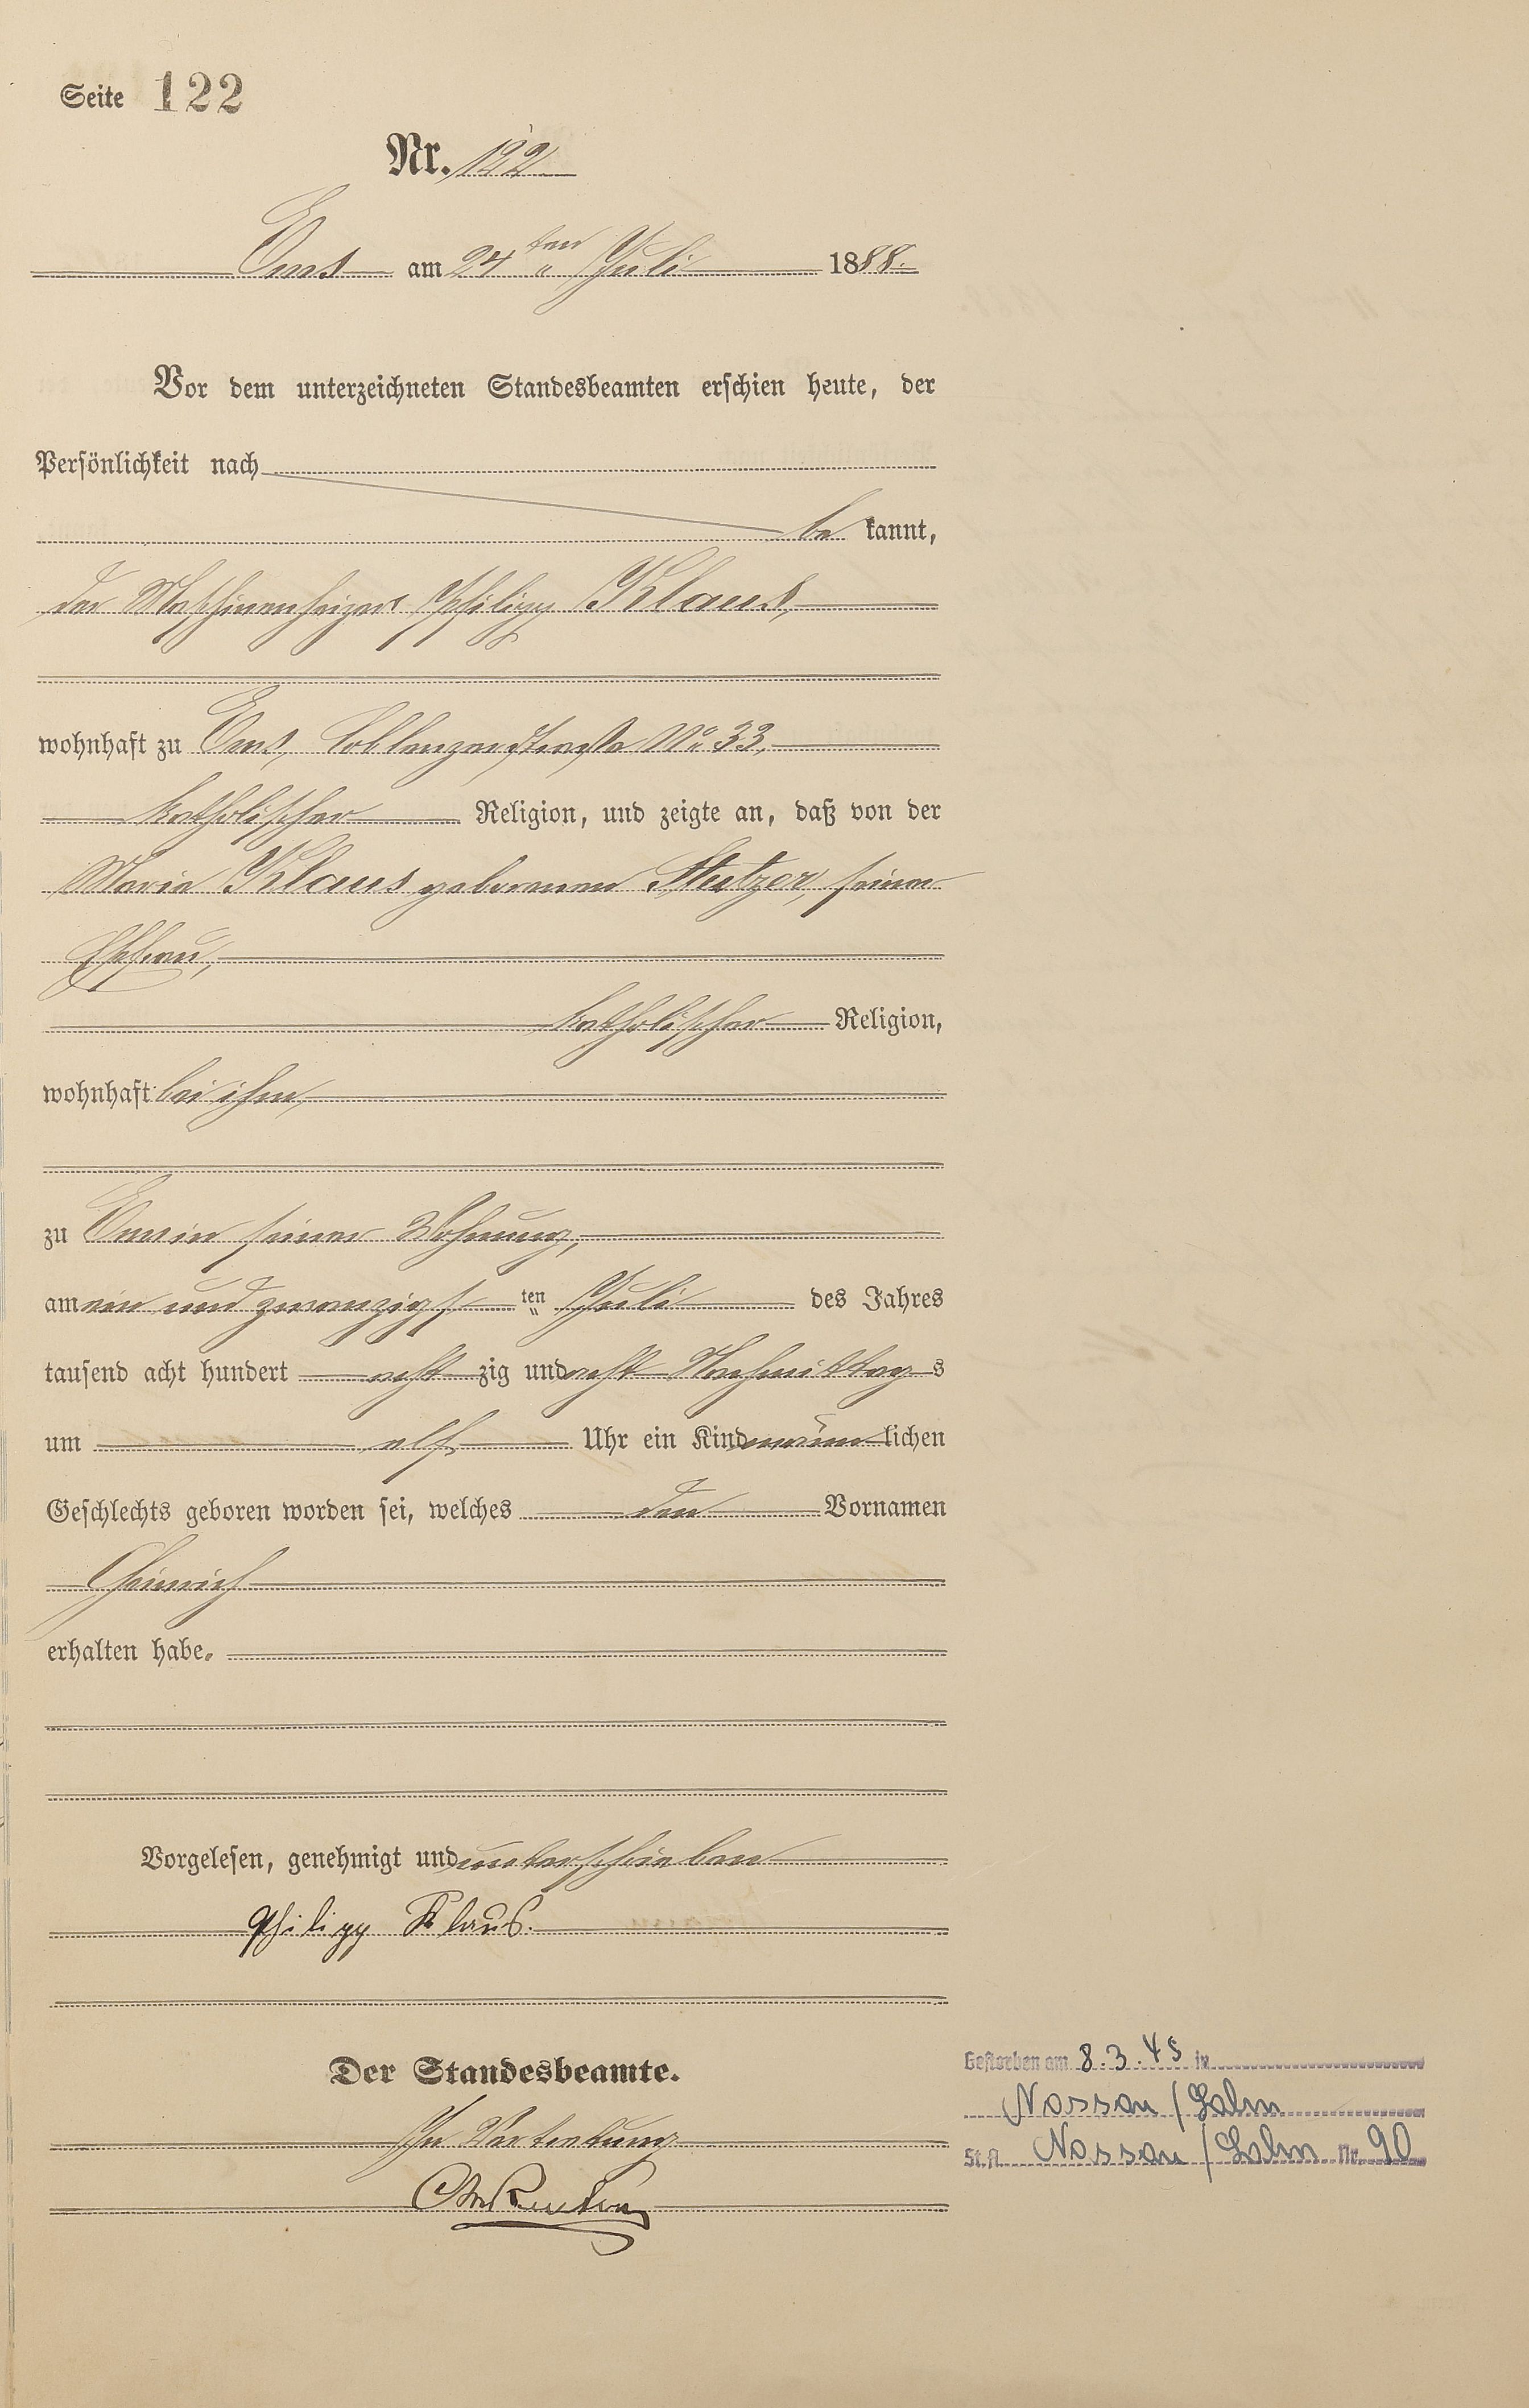 Seite 122
Nr. 122
Ems am 24ten Juli 1888.
Vor dem unterzeichneten Standesbeamten erschien heute, der
Persönlichkeit nach
be kannt,
der Maschinenheizer Philipp Klaus,
wohnhaft zu Ems, Coblenzerstraße No 33,
katholischer Religion, und zeigte an, daß von der
Maria Klaus geborenen Stutzer, seiner
Ehefrau,
katholischer Religion,
wohnhaft bei ihm,
zu Ems in seiner Wohnung,
am ein und zwanzigsten Juli des Jahres
tausend acht hundert acht zig und acht Nachmittags
um elf Uhr ein Kind männlichen
Geschlechts geboren worden sei, welches den Vornamen
Heinrich
erhalten habe.
Vorgelesen, genehmigt und unterschrieben
Philipp Klaus.
Der Standesbeamte.
In Vertretung
Gestorben am 8.3.45 in
Nassau/Lahn
St.A. Nassau/Lahn Nr. 90